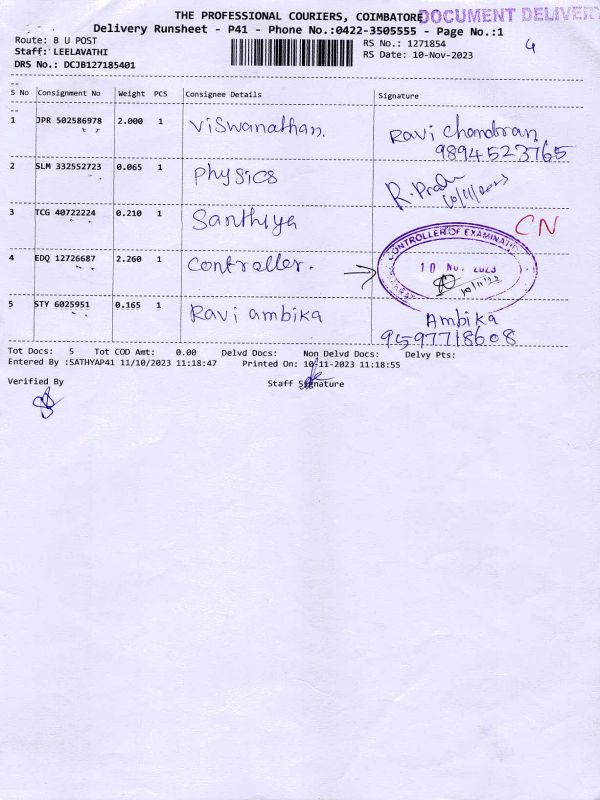 THE PROFESSIONAL COURIERS, COIMBATORE DOCUMENT DELIVERY
Delivery Runsheet - P41 - Phone No.:0422-3505555 - Page No.:1
Route: B U POST
RS No.: 1271854
Staff: LEELAVATHI
RS Date: 10-Nov-2023
DRS No.: DCJB127185401
S No Consignment No Weight PCS Consignee Details Signature
1 JPR 502586978 2.000 1 Viswanathan. Ravi Chandran
9894523765
2 SLM 332552723 0.065 1 Physics
10/11/2023
3 TCG 40722224 0.210 1 Santhiya CN
CONTROLLER OF EXAMINATI
4 EDQ 12726687 2.260 1 Controller. 10 NOV 2023
5 STY 6025951 0.165 1 Ravi ambika Ambika
9597718608
Tot Docs: 5 Tot COD Amt: 0.00 Delvd Docs: Non Delvd Docs: Delvy Pts:
Entered By :SATHYAP41 11/10/2023 11:18:47 Printed On: 10-11-2023 11:18:55
Verified By Staff Signature